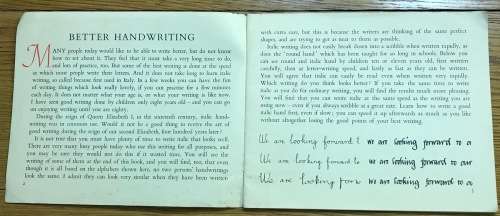 BETTER HANDWRITING
MANY people today would like to be able to write better, but do not know
how to set about it. They feel that it must take a very long time to do,
and lots of practice, too. But some of the best writing is done at the speed
at which most people write their letters. And it does not take long to learn italic
writing, so called because first used in Italy. In a few weeks you can have the fun
of writing things which look really lovely, if you can practise for a few minutes
each day. It does not matter what your age is, or what your writing is like now.
I have seen good writing done by children only eight years old – and you can go
on enjoying writing until you are eighty.
During the reign of Queen Elizabeth I, in the sixteenth century, italic hand-
writing was in common use. Would it not be a good thing to revive the art of
good writing during the reign of our second Elizabeth, four hundred years later?
It is not true that you must have plenty of time to write italic that looks well.
There are very many busy people today who use this writing for all purposes, and
you may be sure they would not do that if it wasted time. You will see the
writing of some of them at the end of this book, and you will find, too, that even
though it is all based on the alphabet shown here, no two persons' handwritings
look the same. I admit they can look very similar when they have been written
2
with extra care, but this is because the writers are thinking of the same perfect
shapes, and are trying to get as near to them as possible.
Italic writing does not easily break down into a scribble when written rapidly, as
does the 'round hand' which has been taught for so long in schools. Below you
can see round and italic hand by children ten or eleven years old, first written
carefully, then at letter-writing speed, and lastly as fast as they can be written.
You will agree that italic can easily be read even when written very rapidly.
Which writing do you think looks better? If you take the same time to write
italic as you do for ordinary writing, you will find the results much more pleasing.
You will find that you can write italic at the same speed as the writing you are
using now – even if you always scribble at a great rate. Learn how to write a good
italic hand first, even if slow; you can speed it up afterwards as much as you like
without altogether losing the good points of your best writing.
We are looking forward t we are looking forward to our
We are looking forward to we are looking forward to our
We are looking forw we are looking forward to o